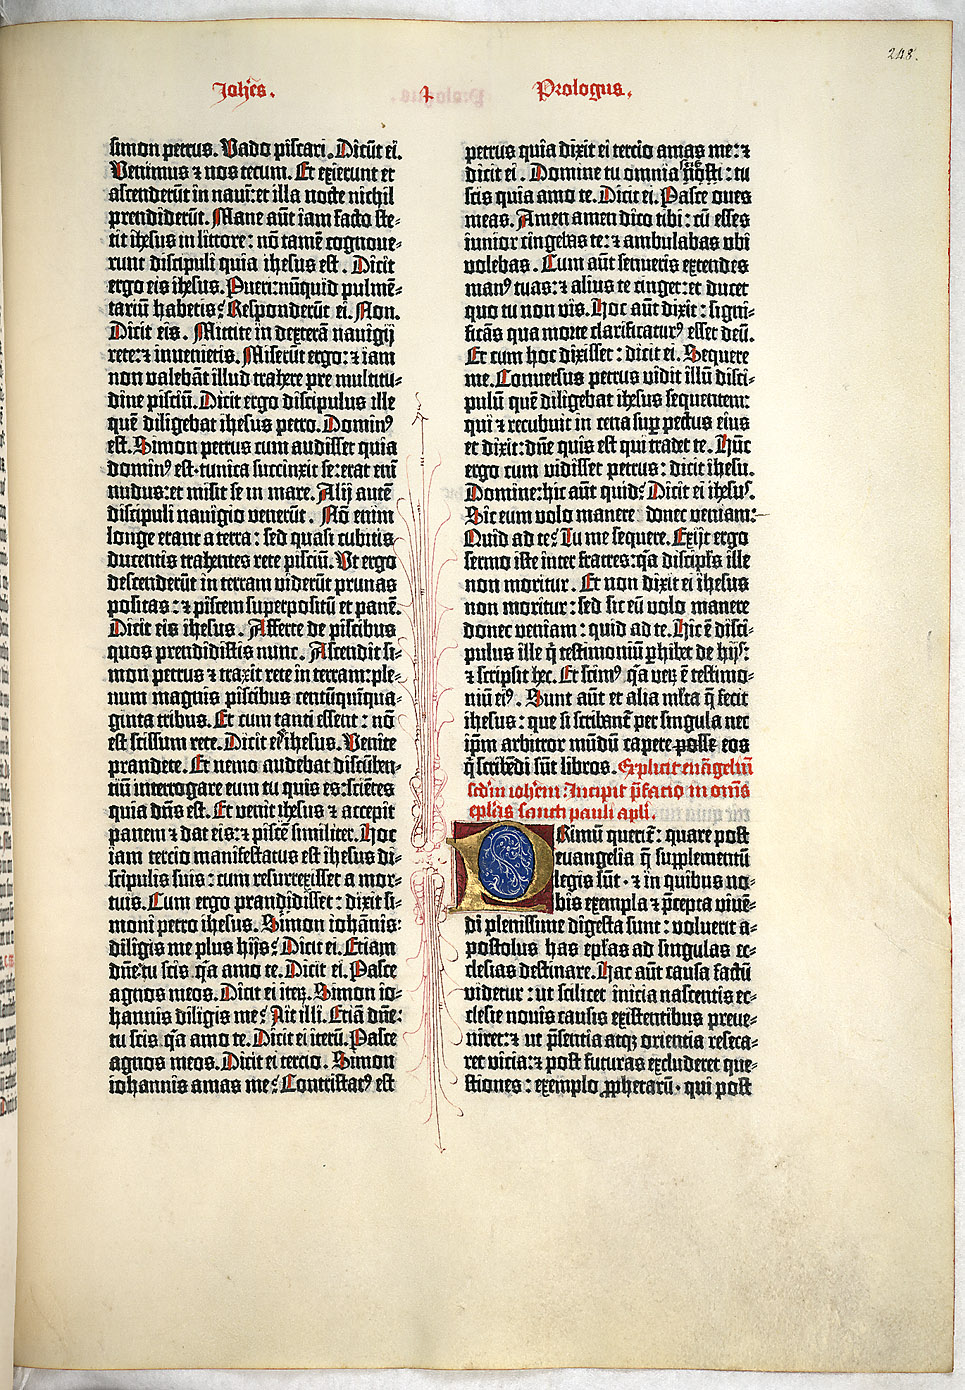 248.
Joh̄es. Prologus.
simon petrus. Vado piscari. Dicūt ei.
Venimus ⁊ nos tecum. Et exierunt et
ascenderūt in navī: et illa nocte nichil
prendiderūt. Mane aūt iam facto ste-
tit ihesus in littore: nō tamē cognoue-
runt discipuli quia ihesus est. Dicit
ergo eis ihesus. Pueri: nūquid pulmē-
tariū habetis? Responderūt ei. Non.
Dicit eis. Mittite in dexterā nauigij
rete: ⁊ inuenietis. Miserūt ergo: ⁊ iam
non valebāt illud trahere pre multitu-
dine pisciū. Dicit ergo discipulus ille
quē diligebat ihesus petro. Dominꝰ
est. Simon petrus cum audisset quia
dominꝰ est· tunica succinxit se: erat enī
nudus: et misit se in mare. Alij autē
discipuli nauigio venerūt. Nō enim
longe erant a terra: sed quasi cubitis
ducentis trahentes rete pisciū. Vt ergo
descenderūt in terram viderūt prunas
positas: ⁊ piscem superpositū et panē.
Dicit eis ihesus. Afferte de piscibus
quos prendidistis nunc. Ascendit si-
mon petrus ⁊ traxit rete in terram: ple-
num magnis piscibus centūquīqua-
ginta tribus. Et cum tanti essent: nō
est scissum rete. Dicit eis ihesus. Venite
prandete. Et nemo audebat discūben-
tiū interrogare eum tu quis es: sciētes
quia dn̄s est. Et venit ihesus ⁊ accepit
panem ⁊ dat eis: ⁊ piscē similiter. Hoc
iam tercio manifestatus est ihesus di-
scipulis suis: cum resurrexisset a mor-
tuis. Cum ergo prandidissēt: dixit si-
moni petro ihesus. Simon iohānis:
diligis me plus hijs? Dicit ei. Etiam
dn̄e: tu scis q̄a amo te. Dicit ei. Pasce
agnos meos. Dicit ei iteꝝ. Simon io-
hannis diligis me? Ait illi. Etiā dn̄e:
tu scis q̄a amo te. Dicit ei iterū. Pasce
agnos meos. Dicit ei tercio. Simon
iohannis amas me? Contristatꝰ est
petrus quia dixit ei tercio amas me: ⁊
dicit ei. Domine tu omnia nosti: tu
scis quia amo te. Dicit ei. Pasce oues
meas. Amen amen dico tibi: cū esses
iunior cingebas te: ⁊ ambulabas vbi
volebas. Cum aūt senueris extendes
manꝰ tuas: ⁊ alius te cinget: et ducet
quo tu non vis. Hoc aūt dixit: signi-
ficās qua morte clarificaturꝰ esset deū.
Et cum hoc dixisset: dicit ei. Sequere
me. Conuersus petrus vidit illū disci-
pulū quē diligebat ihesus sequentem:
qui ⁊ recubuit in cena suꝑ pectus eius
et dixit: dn̄e quis est qui tradet te. Hūc
ergo cum vidisset petrus: dicit ihesu.
Domine: hic aūt quid? Dicit ei ihesus.
Sic eum volo manere donec veniam:
Quid ad te? Tu me sequere. Exijt ergo
sermo iste inter fratres: q̄a discipl̄s ille
non moritur. Et non dixit ei ihesus
non moritur: sed sic eū volo manere
donec veniam: quid ad te. Hic ē disci-
pulus ille q̄ testimoniū ꝑhibet de hijs:
⁊ scripsit hec. Et scimꝰ q̄a veꝝ ē testimo-
niū eiꝰ. Sunt aūt et alia ml̄ta q̄ fecit
ihesus: que si scribant̄ per singula nec
ip̄m arbitror mūdū capere posse eos
q̄ scribēdi sūt libros. Explicit euāgeliū
scd̄m ioh̄em: Incipit p̄facio in om̄s
epl̄as sancti pauli apl̄i.
PRimū querit̄: quare post
euangelia q̄ supplementū
legis sūt· ⁊ in quibus no-
bis exempla ⁊ p̄cepta viuē-
di plenissime digesta sunt: voluerit a-
postolus has epl̄as ad singulas ec-
clesias destinare. Hac aūt causa factū
videtur: ut scilicet inicia nascentis ec-
clesie nouis causis existentibus preue-
niret: ⁊ ut p̄sentia atqꝫ orientia reseca-
ret vicia: ⁊ post futuras excluderet que-
stiones: exemplo ꝓphetarū· qui post